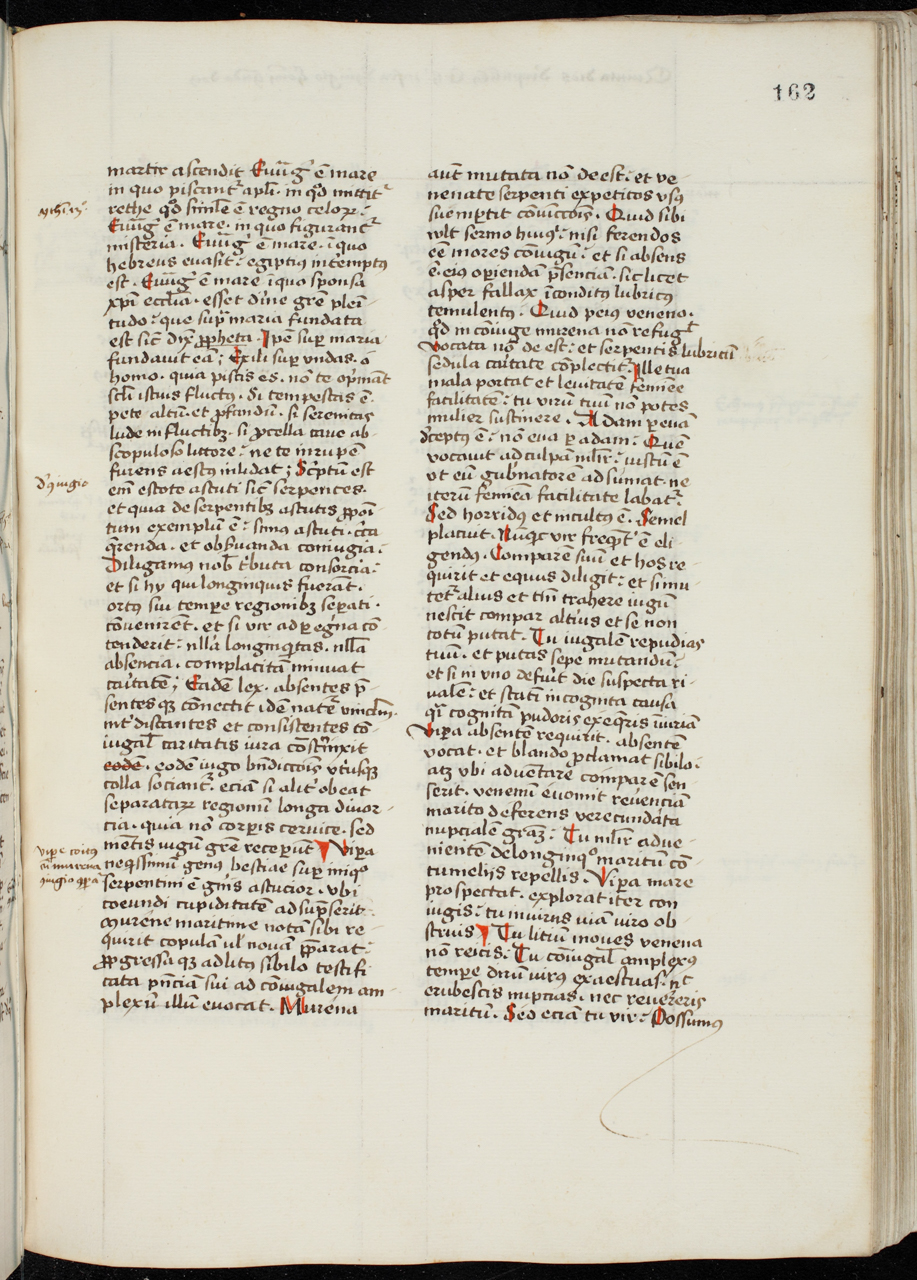 162
martir ascendit Euu̅g̅ e̅ mare
in quo piscant᷑ apl̅i. in q̅d mittit᷑
rethe q̅d simile e̅ regno celoꝝ.
Euu̅g̅ e̅ mare. in quo figurant᷑
misteria. Euu̅g̅ e̅ mare. i̅ quo
hebreus euasit: egiptiꝰ inte̅mptꝰ
est. Euu̅g̅ e̅ mare i̅ quo sponsa
xp̅i eccl̅ia. esset di̅ne gr̅e plei̅
tudo: que sup̱ maria fundata
est sic̅ dix̅ ꝓpheta. Ip̅e sup̱ maria
fundauit ea̅; Exili sup̱ vndas. o
homo. quia piscis es. no̅ te op̱imāt
sc̅li istius fluctꝰ. di tempestas e̅.
pete altu̅. et ꝓfundu̅. si serenitas
lude in fluctibꝫ. si ꝓcella caue ab
scopuloso littore: ne te in rupe̅
furens aestꝰ inlidat; Sc̅ptu̅ est
eni̅ estote astuti sic̅ serpentes.
et quia de serpentibꝫ astutis ꝓpoi̅
tum exemplu̅ e̅: simus astuti. ci̅ca
q̅renda. et obſ̅uanda coniugia.
Diligamus nob̅ t̅buta consorcia:
et si hy qui longinquis fuera̅t.
ortꝰ sui temp̱e regionibꝫ sep̱ati.
co̅uenire̅t. et si vir ad p̱egr̅na co̅
tenderit: nll̅a longinq̅tas. nll̅a
absencia. complacita̅ minuat
ca̅itate̅; Eade̅ lex. absentes p̅
sentes qꝫ co̅nectit ide̅ nat᷑e vinclm̅.
int̅ distantes et consistentes co̅
iugal̅ caritatis iura co̅st̅inxit
eode̅. eode̅ iugo bn̅diccois̅ vt̅usqꝫ
colla sociant᷑. ecia̅ si alit̅ obeat
separataꝝ regionu̅ longa diuor
cia. quia no̅ corp̱is ceruice. sed
me̅tis iugu̅ gr̅e recep̱u̅t Vip̱a
neqissimu̅ genꝰ bestiae sup̱ om̅iqꝫ
serpentini e̅ gn̅is astucior. vbi
coeundi cupiditate̅ adsu̅pserit.
murene maritime nota̅ sibi re
quirit copula̅ ul̅ noua̅ p̅parat:
ꝓgressa qꝫ ad litꝰ sibilo testifi
cata pn̅cia̅ sui ad co̅iugalem am
plexu̅ illu̅ euocat. Murena
aut̅ mutata no̅ de est. et ve
nenate serpenti expetitos vsꝰ
sue inp̱tit co̅iu̅ccois̅. Quid sibi
vult sermo huiꝰ: nisi ferendos
ee̅ mores coniugu̅. et si absens
e̅. eiꝰ op̱ienda̅ p̅sencia̅. sic licet
asper fallax i̅conditꝰ lubricꝰ
temulentꝰ. Quid peiꝰ veneno.
q̅d in co̅iuge murena no̅ refugit̅
vocata no̅ de est: et serpentis lubricu̅
sedula ca̅itate co̅plectit᷑. Ille tua
mala portat et leuitate̅ fem̅ee
facilitate̅: tu viru̅ tuu̅ no̅ potes
mulier sustinere. Adam per eua̅
d̅ceptꝰ e̅: no̅ eua p̱ ada̅. Que̅
vocauit ad culpa̅ ml̅ir: iustu̅ e̅
vt eu̅ gub̅natore̅ adsumat. ne
iteru̅ femi̅ea facilitate labat᷑.
Sed horridꝰ et incultꝰ e̅. Semel
placuit. Nu̅qc̅ vir freqnt̅ e̅ eli
gendꝰ. Compare̅ suu̅ et hos re
quirit et equus diligit: et si mu
tet᷑ alius et tn̅ trahere iugu̅
nescit compar alt̅ius et se non
totu̅ putat. Tu iugalem repudias
tuu̅. et putas sepe mutandu̅.
et si in vno defu̅it die suspecta ri
uale̅: et stati̅ incognita causa
q̅i cognita̅ pudoris exeq̅ris iu̅uria̅
Vip̱a absente̅ requirit. absente̅
vocat. et blando ꝓclamat sibilo.
atꝫ vbi aduentare compare̅ sen
serit. venenu̅ euomit reuencia̅
marito deferens verecundata
nupciale̅ gra̅ꝫ: Tu ml̅ir adue
niente̅ de longinqꝰ maritu̅ co̅
tumeliis repellis. Vip̱a mare
prospectat. explorat iter con
iugis: tu iniurus via̅ viro ob
struis Tu litiu̅ moues venena
no̅ reicis: Tu co̅iugal̅ amplexꝰ
temp̱e diru̅ virus exaestuas. nc̅
erubescis nupcias. nec reuereris
maritu̅. Sed ecia̅ tu vir: Possumꝰ
d' ꝯiugio
vip̱e coitꝰ
cu̅ murena